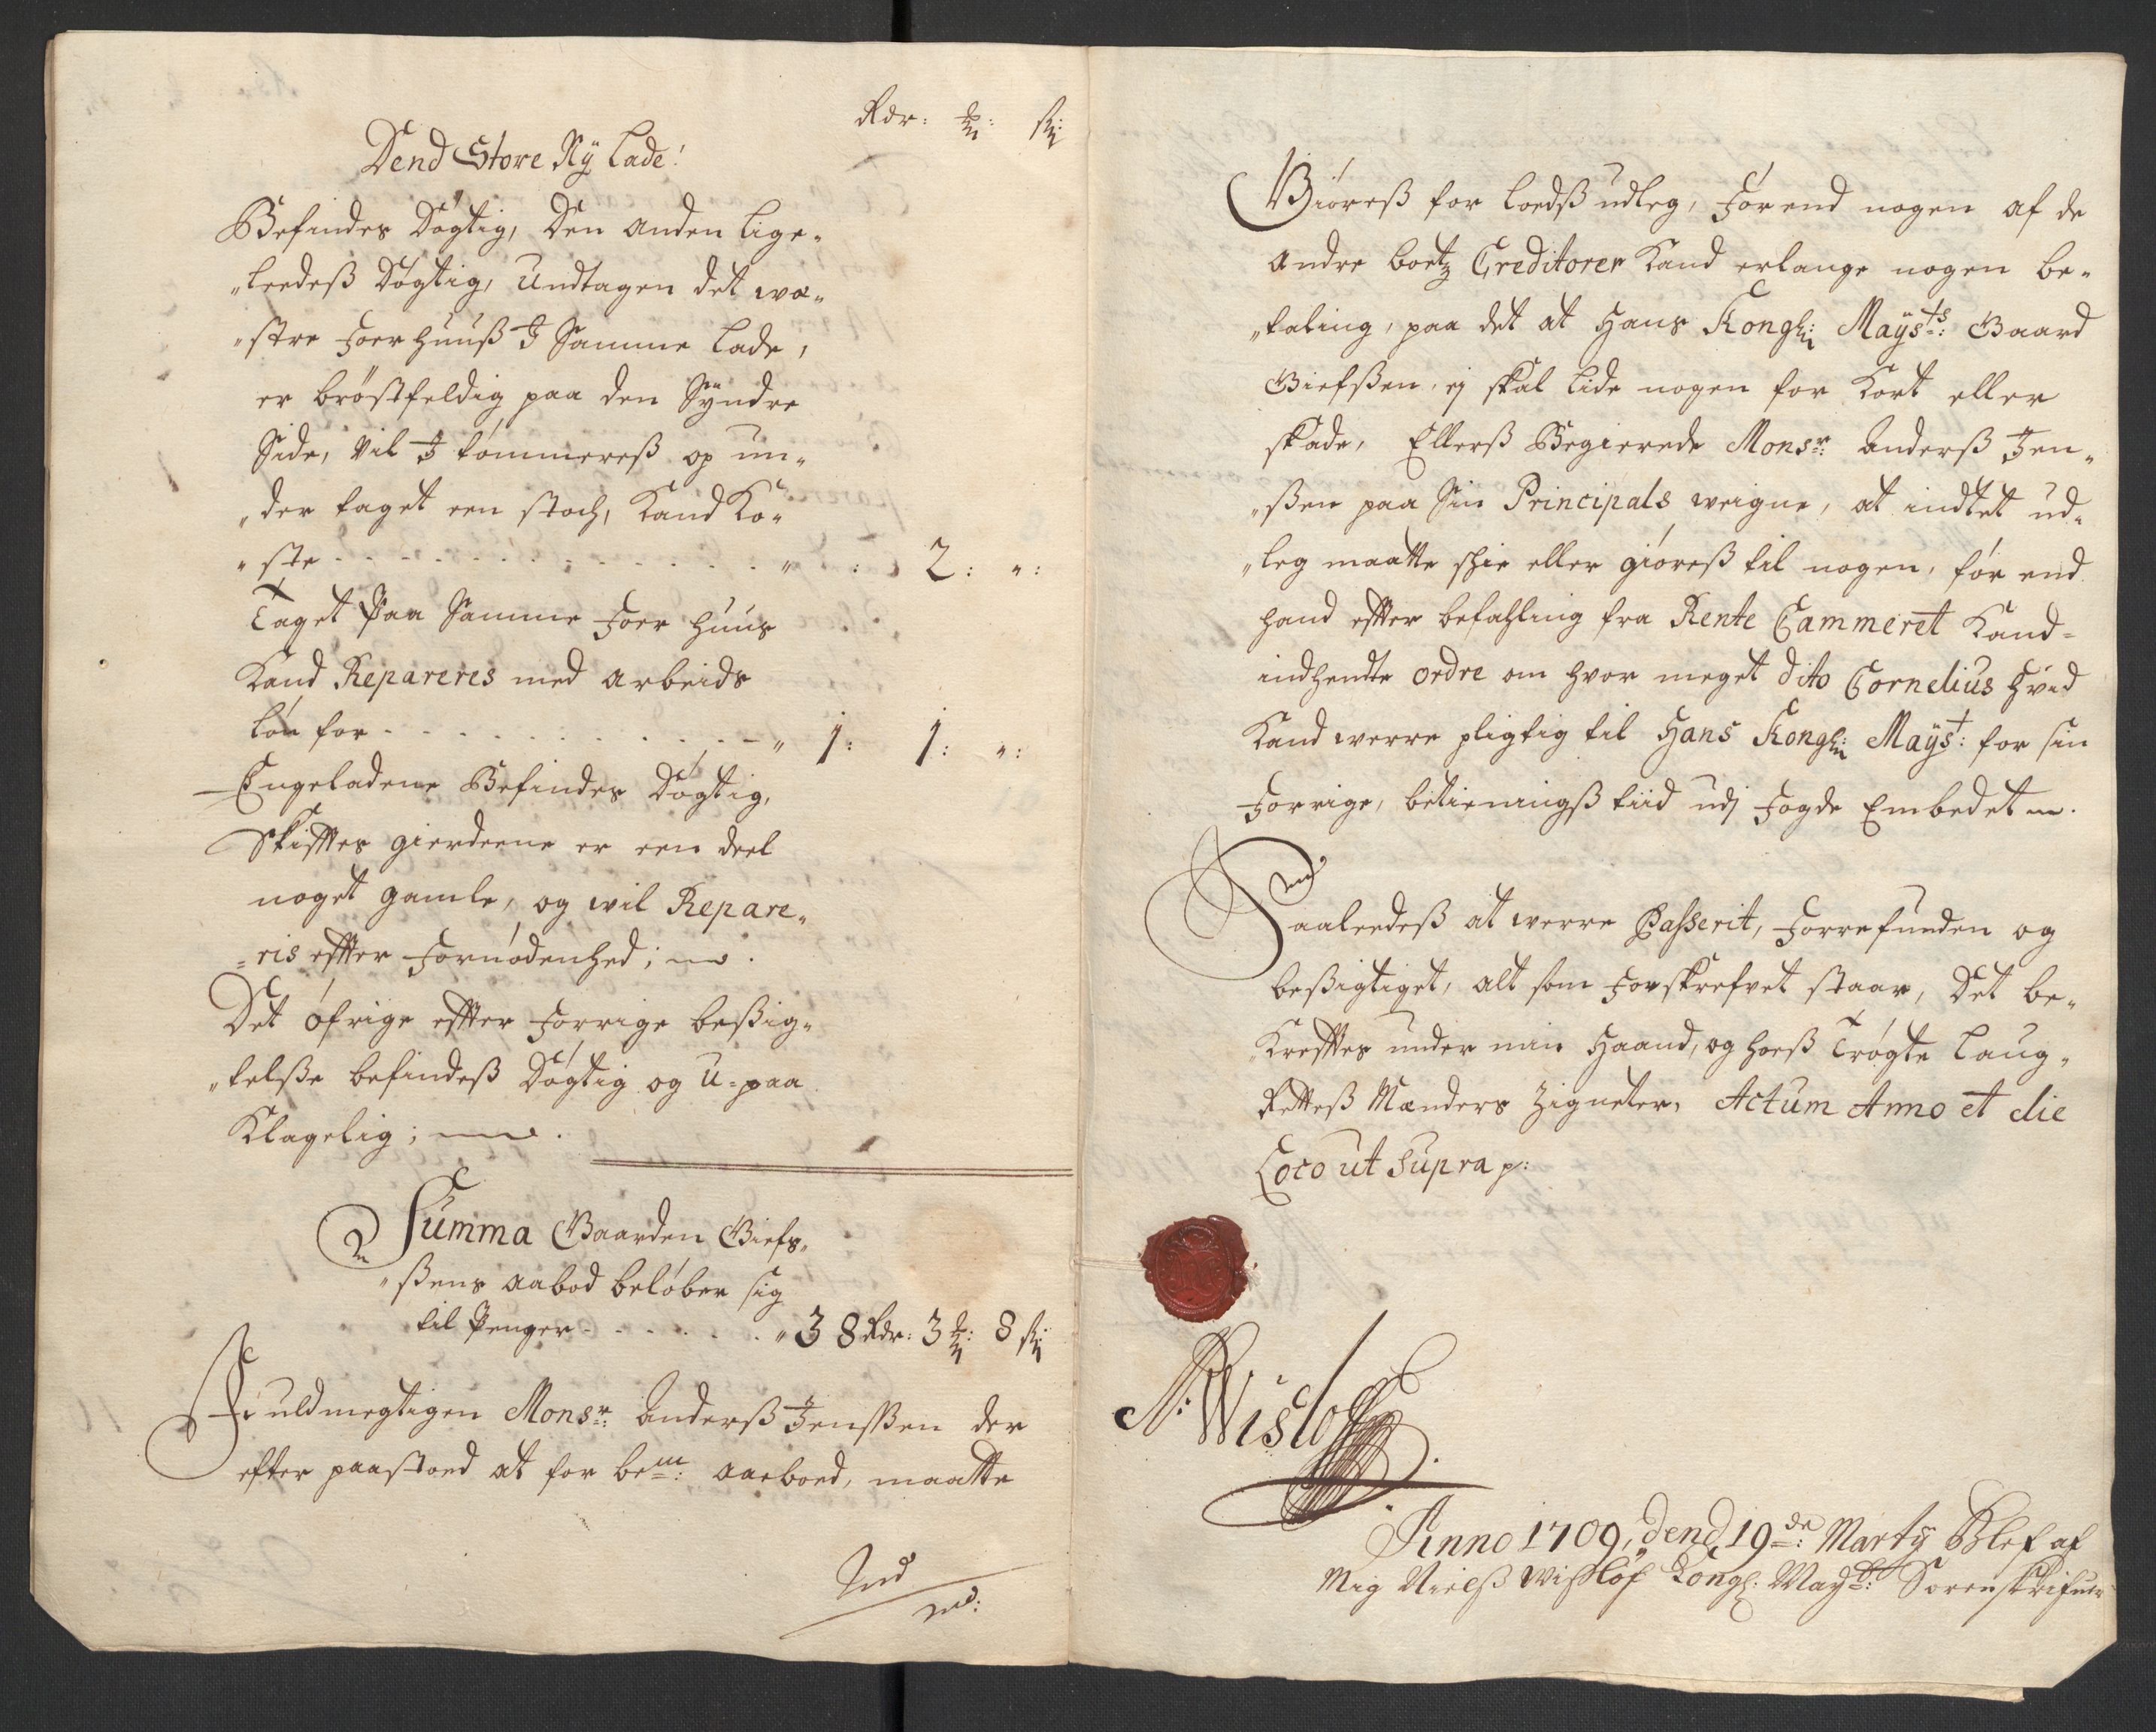 Rdr: ₰: ß:
Dend Store Nÿ Lade:
Befindes Døgtig, Den anden lige-
"leedeß Døgtig, Undtagen det we-
"stre Foer huuß I Samme Lade,
er brøstfeldig paa den Syndre
Side, vil I tømmereß op un-
"der taget een stoch, Kand Ko-
"ste - - - - - - " : 2: ":
Taget Paa Samme Foer huus
Kand Repareres med arbeids
løn for - - - - - - " 1: 1: ":
Engeladene Befindes Døgtig,
Skifftes gierderne er een deel
noget gamle, og wil Repare-
=ris effter Fornødenhed;
Det øfrige effter Forrige beßig-
"telße befindeß Døgtig og U-paa
Klagelig;
Summa Gaarden Giefs-
"ßens aabod beløber sig
til Penger - - - - - " 38 Rdr: 3 : 8 ß
Fuldmegtigen Monsr: Anderß Jenßen der
efter paastoed at for bem: aaboed, maatte
Giøreß for loedß udleg, Førend nogen af de
andre boetz Creditorer Kand erlange nogen be-
"taling, paa det at Hans Kongl: Maÿsts: Gaard
Giefßen, ej skal lide nogen for Kort eller
skade, Ellerß Begierede Monsr: Anderß Jen-
"ßen paa Sin Principals weigne, at indtet ud-
"leg maatte skie eller giøreß til nogen, før end
hand effter befahling fra Rente Cammeret Kand-
indhendte ordre om hvor meget dito Cornelius Hvid
Kand werre pligtig til Hans Kongl: Maÿst: for sin
Forrige, betieningß tiid udj Fogde Embedet
Saaleedeß at werre Passerit, Forrefunden og
beßigtiget, alt som Forskrefvet staar, Det be-
"Krefftes under min Haand, og hoeß Trøgte Laug-
Retteß Mænders Zigneter. Actum Anno et die
Loco ut Supra p:
N: Wisloff
Anno 1709, dend 19de: Martÿ Blef af
Mig Nielß Wisløf Kongl: Mayts: Sorenskrifuer